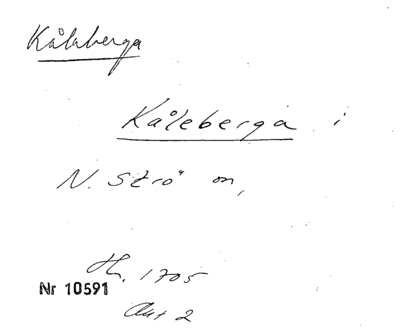 Kåleberga
Kåleberga i
N. Strö sn,
Hl. 1705
Nr 10591
Akt 2